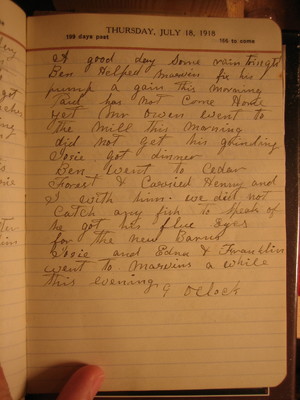 THURSDAY, JULY 18, 1918
199 days past
166 to come
A good day Some rain tonight
Ben Helped Marvin fix his
pump a gain this morning
Paul has not Come Home
yet Mr Owen went to
the Mill this Morning
did not get his grinding
Josie Got dinner
Ben went to Cedar
Forest & Carried Henry and
I with him. we did not
Catch any fish to speak of
he got his flue Eyes
for the new Barns
Josie and Edna & Franklin
went to Marvins a while
this evening 9 oClock